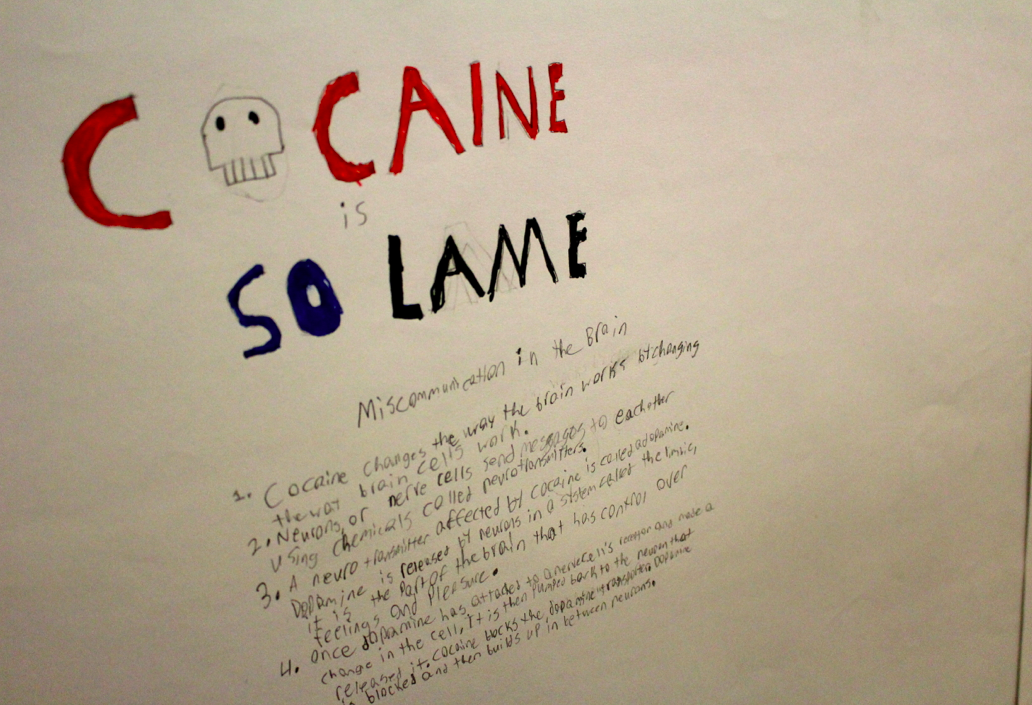 COCAINE
is
SO LAME
Miscommunication in the Brain
1. Cocaine changes the way the brain works by changing
the way brain cells work.
2. Neurons, or nerve cells send messages to eachother
using chemicals called neurotransmitters.
3. A neurotransmitter affected by cocaine is called dopamine.
Dopamine is released by neurons in a system called the limbic,
it is the part of the brain that has control over
feelings and pleasure.
4. Once dopamine has attached to a nervecell's and made a
change in the cell, it is then pumped back to the neuron that
released it. Cocaine blocks the dopamine transporter. Dopamine
is blocked and then builds up in between neurons.